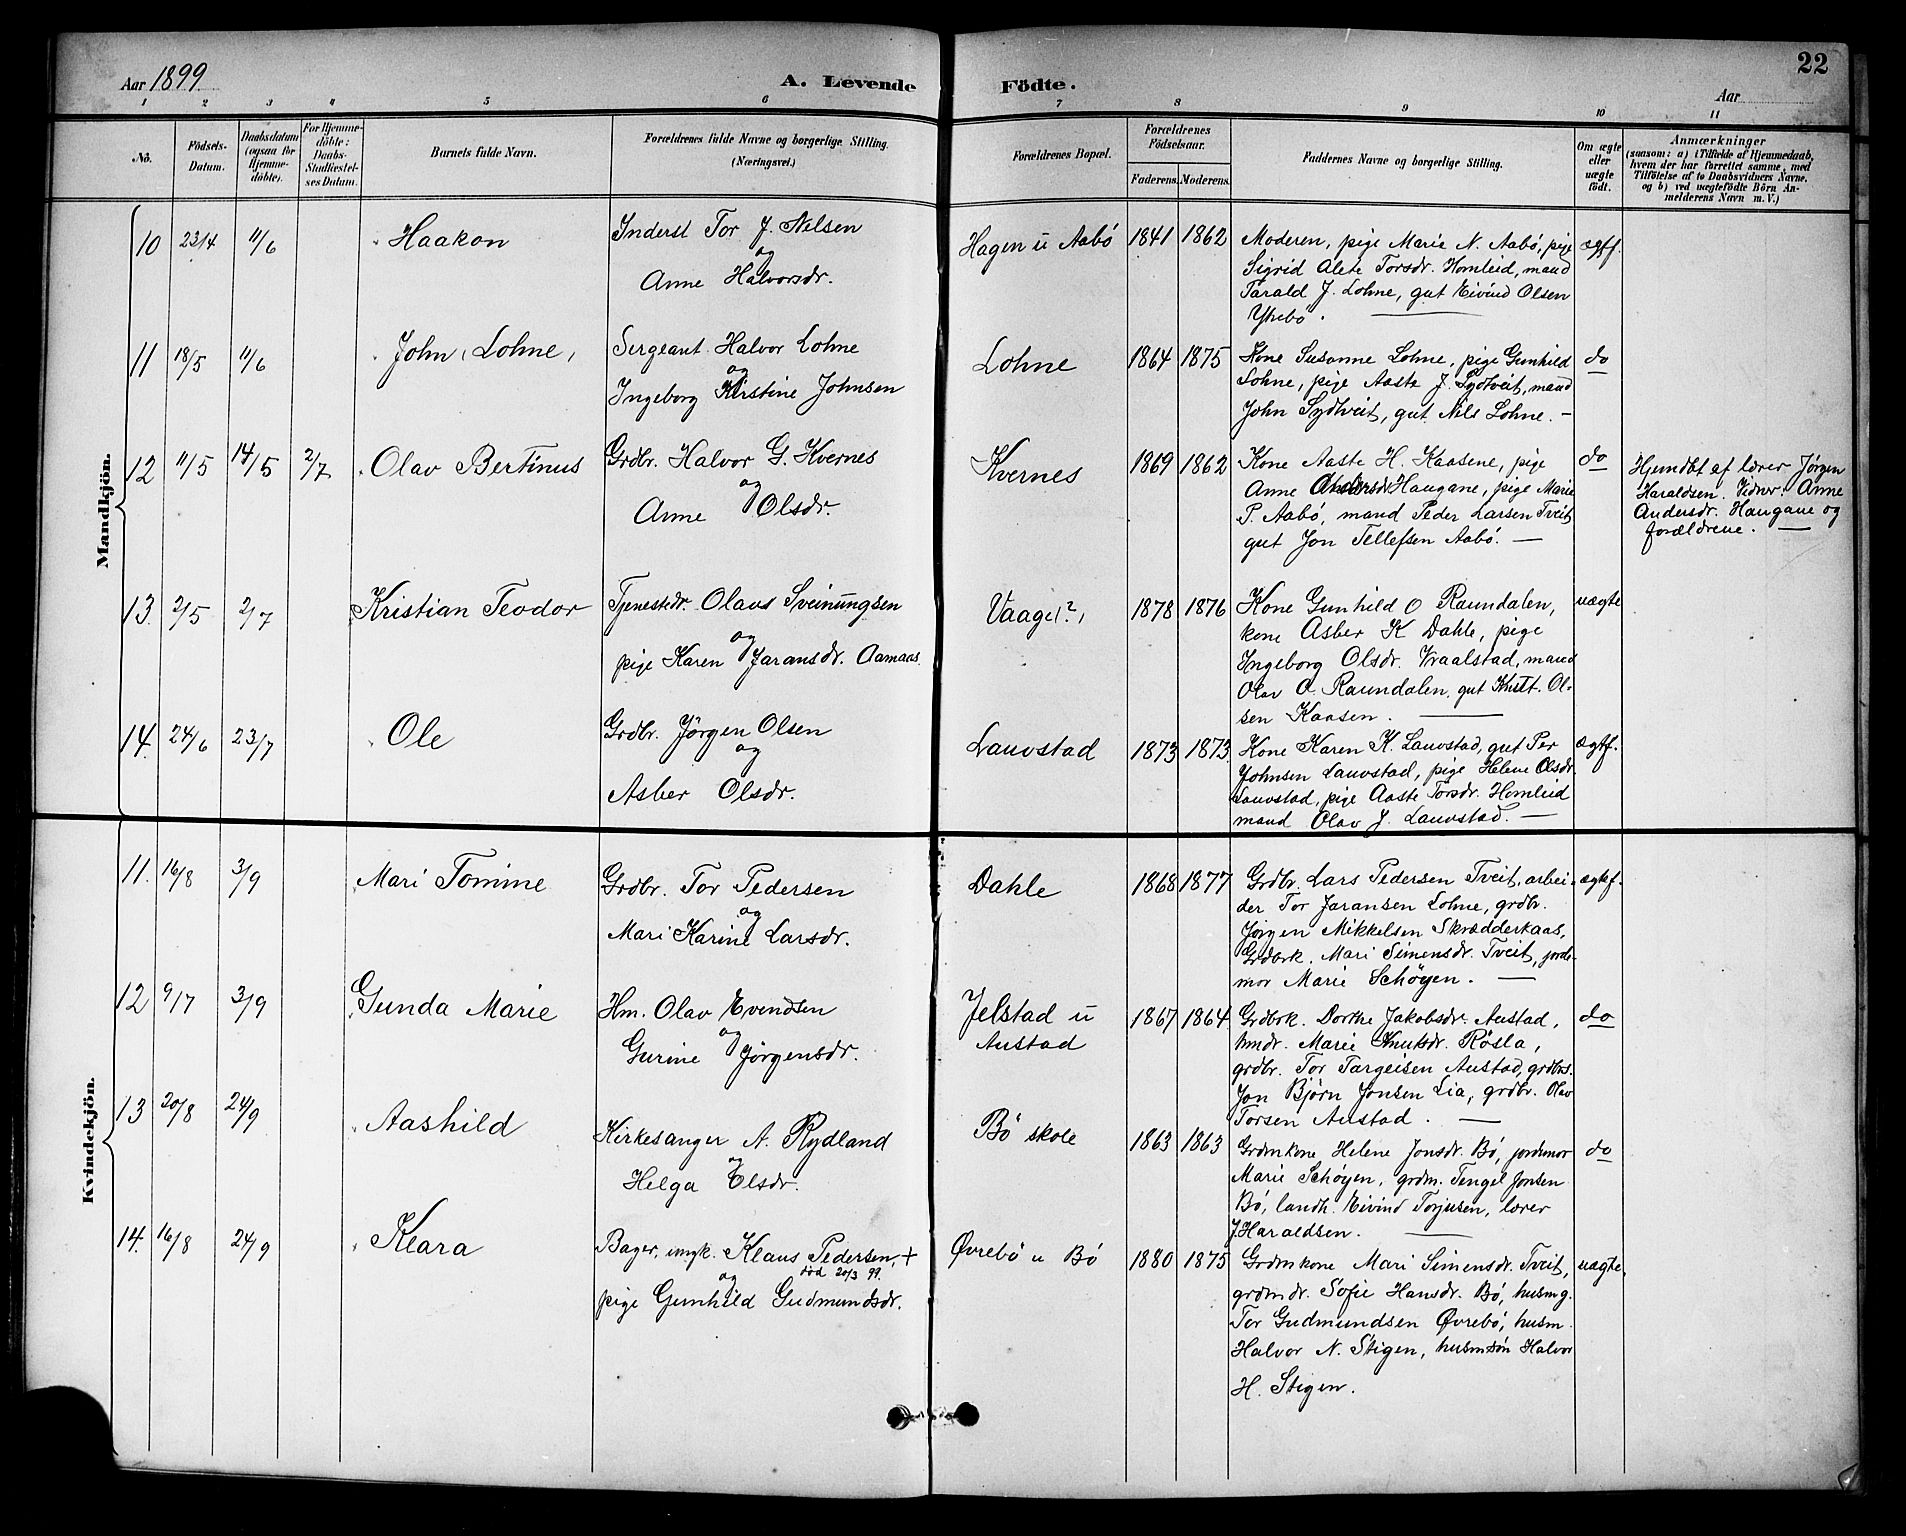 22
Aar 1899.
A. Levende Födte.
Aar
1 2 3 4 5 6 7 8 9 10 11
No.
Födsels-
Datum.
Daabsdatum
(ogsaa for
Hjemme-
döbte).
For Hjemme-
döbte:
Daabs-
Stadfæstel-
ses Datum.
Barnets fulde Navn.
Forældrenes fulde Navne og borgerlige Stilling.
(Næringsvei.)
Forældrenes Bopæl.
Forældrenes
Födselsaar.
Faderens. Moderens.
Faddernes Navne og borgerlige Stilling.
Om ægte
eller
uægte
födt.
Anmærkninger
(saasom: a) i Tilfælde af Hjemmedaab,
hvem der har forrettet samme, med
Tilföielse af to Daabsvidners Navne,
og b) ved uægtefödte Börn An-
melderens Navn m. V.)
Mandkjön.
10 23/4 11/6
Haakon
Inderst Tor J. Nilsen
og
Anne Halvorsdr.
Hagen u Aabö
1841 1862
Moderen, pige Marie N. Aabö, pige
Sigrid Alete Torsdr. Homleid, mand
Tarald J. Lohne, gut Eivind Olsen
Ytrebö.
ægtf.
11 18/5 11/6
John (Lohne)
Sergeant Halvor Lohne
og
Ingeborg Kirstine Johnsen
Lohne
1864 1875
Kone Susanne Lohne, pige Gunhild
Lohne, pige Aaste J. Sydtveit, mand
John Sydtveit, gut Nils Lohne. —
do
12 11/5 14/5 2/7
Olav Bertinus
Grdbr. Halvor G. Kvernes
og
Anne Olsdr.
Kvernes
1869 1862
Kone Aaste H. Kaasene, pige
Anne Andersdr Haugane, pige Marie
P. Aabö, mand Peder Larsen Tveit
gut Jon Tellefsen Aabö. —
do
Hjemdbt af lærer Jørgen
Haraldsen. Vidner: Anne
Andersdr. Haugane og
forældrene. —
13. 2/5 2/7
Kristian Teodor
Tjenestedr. Olaus Sveinungsen
og
pige Karen Jaransdr. Aamaas.
Vaage(?)
1878 1876
Kone Gunhild O Raundalen,
kone Asber K Dahle, pige
Ingeborg Olsdr. Vraalstad, mand
Olav O. Raundalen, gut Knut Ol-
sen Kaasen.
uægte
14. 24/6 23/7
Ole
Grdbr. Jörgen Olsen
og
Asber Olsdr.
Lauvstad
1873 1873.
Kone Karen K. Lauvstad, gut Per
Johnsen Lauvstad, pige Helene Olsdr.
Lauvstad, pige Aaste Torsdr. Homleid
mand Olav J. Lauvstad. —
ægtf.
Kvindekjön.
11. 16/8 3/9
Mari Tomine
Grdbr. Tor Pedersen
og
Mari Karine Larsdr.
Dahle
1868 1877
Grdbr. Lars Pedersen Tveit, arbei-
der Tor Jaransen Lohne, grdbr.
Jörgen Mikkelsen Skrædderkaas,
Grdbrk. Mari Simensdr. Tveit, jorde-
mor Marie Schöyen. —
ægtef.
12 9/7 3/9
Gunda Marie
Hm. Olav Evendsen
og
Gurine Jørgensdr.
Jelstad u
Austad
1867 1864
Grdbrk. Dorthe Jakobsdr. Austad,
hmdr. Marie Knutsdr. Røsla,
grdbr. Tor Targeisen Austad, grdbrs.
Jon Bjørn Jonsen Lia, grdbr. Olav
Torsen Austad. —
do
13 20/8 24/9
Aashild
Kirkesanger A. Rydland
og
Helga Elsdr.
Bö skole
1863 1863
Grdmkone Helene Jonsdr. Bö, jordemor
Marie Schöyen, grdm. Tengel Jonsen
Bö, landh. Eivind Torjusen, lærer
J. Haraldsen.
do
14. 16/8 24/9
Klara
Bager, ungk. Klaus Pedersen, +
død 20/3 99.
og
pige Gunhild Gudmundsdr.
Øvrebö u Bö
1880 1875
Grdmkone Mari Simensdr. Tveit,
grdmdr. Sofie Hansdr. Bö, husmg.
Tor Gudmundsen Øvrebö, husm.
Halvor N. Stigen, husmsön Halvor
H. Stigen.
uægte.